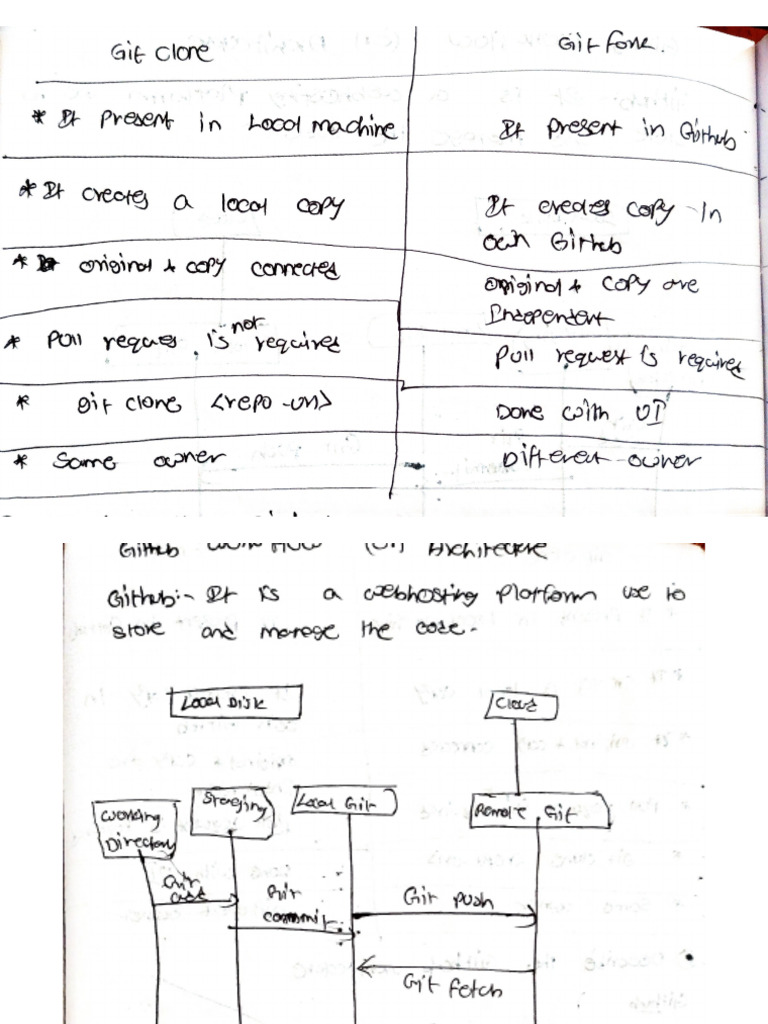 Git clone
Git fork.
* It Present in Local machine
It present in Github.
* It creates a local copy
It creates copy in
own Github
* original + copy connected
original + copy are
Independent
* Pull request is not required
Pull request is required
* git clone <repo-url>
Done with UI
* Same owner
Different owner
Github work flow (or) Architecture
Github:- It is a webhosting platform use to
store and manage the code.
Local Disk
Cloud
Working
Directory
Staging
Local Git
Remote Git
Git
add
Git
commit
Git push
Git fetch